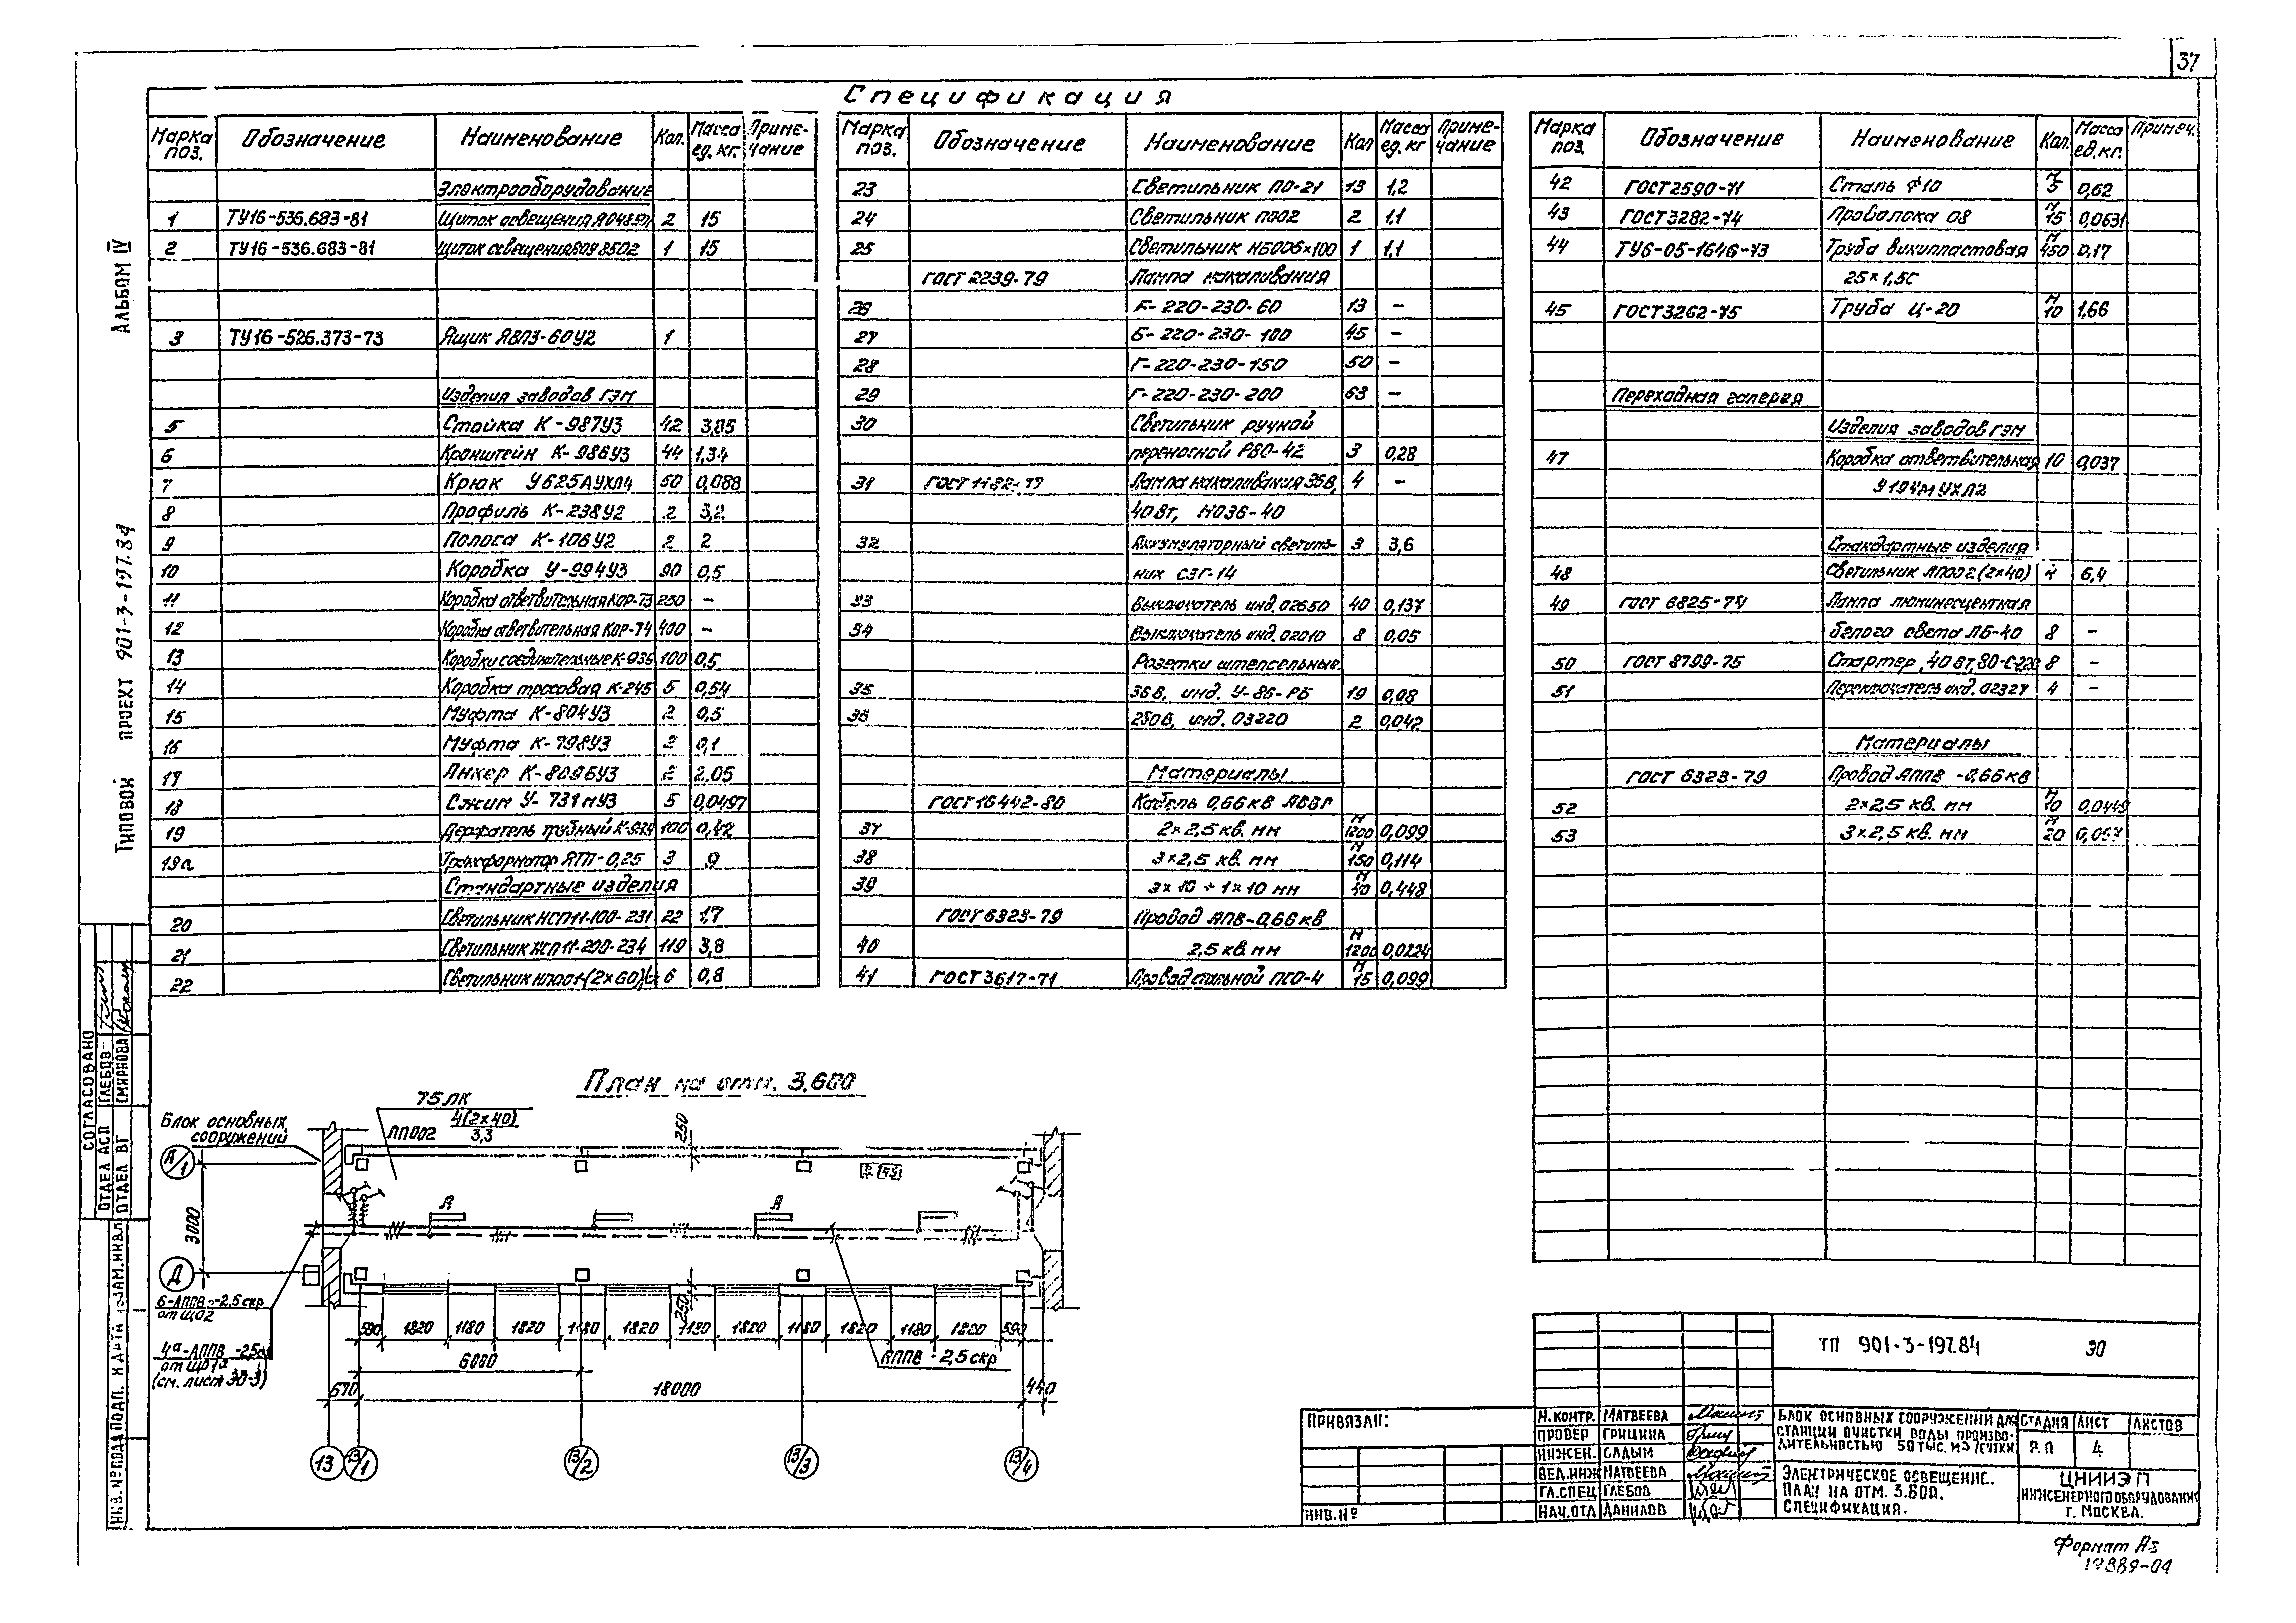 37
Спецификация
Марка поз. Обозначение Наименование Кол. Масса ед. кг. Примечание
Электрооборудование
1 ТУ16-536.683-81 Щиток освещения 2 15
2 ТУ16-536.683-81 Щиток освещения 1 15
3 ТУ16-526.373-73 Ящик ЯВПЗ-60У2 1
Изделия заводов ГЭМ
5 Стойка К-987У3 42 3,85
6 Кронштейн К-986У3 44 1,34
7 Крюк У625АУХЛ4 50 0,088
8 Профиль К-238У2 2 3,2
9 Полоса К-106У2 2 2
10 Коробка У-994У3 90 0,5
11 Коробка ответвительная КОР-73 250 –
12 Коробка ответвительная КОР-74 400 –
13 Коробки соединительные 100 0,5
14 Коробка тросовая К-245 5 0,54
15 Муфта К-804У3 2 0,5
16 Муфта К-798У3 2 0,1
17 Анкер К-809БУ3 2 2.05
18 Сжим У-731МУ3 5 0,0497
19 Держатель трубный 100
19а Трансформатор ЯТП-0,25 3 9
Стандартные изделия
20 Светильник НСП11-100-231 22 1,7
21 Светильник НСП11-200-234 119 3,8
22 Светильник 6 0,8
Марка поз. Обозначение Наименование Кол Масса ед. кг Примечание
23 Светильник ПО-21 13 1,2
24 Светильник П002 2 1,1
25 Светильник НБ006×100 1 1,1
ГОСТ 2239-79 Лампа накаливания
26 Б-220-230-60 13 –
27 Б-220-230-100 45 –
28 Г-220-230-150 50 –
29 Г-220-230-200 63 –
30 Светильник ручной
переносной РВО-42 3 0,28
31 Лампа накаливания 36В, 4 –
40Вт, МО36-40
32 Аккумуляторный светиль- 3 3,6
ник СЗГ-14
33 Выключатель инд. 02650 40 0,137
34 Выключатель инд. 02010 8 0,05
Розетки штепсельные
35 36В, инд. У-86-РБ 19 0,08
36 250В, инд. 03220 2 0,042
Материалы
ГОСТ 16442-80 Кабель 0,66кВ АВВГ
37 2×2,5 кв. мм м 1200 0,099
38 3×2,5 кв. мм м 150 0,114
39 3×10+1×10 мм м 40 0,448
ГОСТ 6323-79 Провод АПВ-0,66кВ
40 2,5 кв мм м 1200 0,0224
41 ГОСТ 3617-71 стальной ПСО-4 м 15 0,099
Марка поз. Обозначение Наименование Кол. Масса ед.кг. Примеч.
42 ГОСТ 2590-71 Сталь Ф10 м 5 0,62
43 ГОСТ 3282-74 Проволока 08 м 15 0,0631
44 ТУ6-05-1646-73 Труба винипластовая м 450 0,17
25×1,5С
45 ГОСТ 3262-75 Труба Ц-20 м 10 1,66
Переходная галерея
Изделия заводов ГЭМ
47 Коробка ответвительная 10 0,037
У194М УХЛ2
Стандартные изделия
48 Светильник ЛП002 (2×40) 4 6,4
49 ГОСТ 6825-74 Лампа люминесцентная
белого света ЛБ-40 8 –
50 ГОСТ 8799-75 Стартер, 40Вт, 80-С-220 8 –
51 Переключатель инд. 02327 4 –
Материалы
ГОСТ 6323-79 Провод АППВ-0,66кВ
52 2×2,5 кв. мм м 10 0,0449
53 3×2,5 кв. мм м 20
План на отм. 3.600
75 ЛК
ЛП002 4(2×40)
3,3
Блок основных
сооружений
А/1
Д
3000
250
250
А
А
6-АППВ-2,5 скр
от ЩО2
4а-АППВ
от ЩО1а
(см. лист ЭО-3)
590 1820 1180 1820 1180 1820 1180 1820 1180 1820 1180 1820 590
АППВ-2,5 скр
6000
670 18000 440
13 13/1 13/2 13/3 13/4
Альбом IV
Типовой проект 901-3-197.84
Согласовано
Отдел АСП Глебов
Отдел ВГ Смирнова
Инв.№подл Подп. и дата Взам.инв.№
Привязан:
Инв.№
ТП 901-3-197.84 ЭО
Н.контр. Матвеева
Провер Грицина
Инжен. Садым
Вед.инж Матвеева
Гл.спец Глебов
Нач.отд Данилов
Блок основных сооружений для
станции очистки воды произво-
дительностью 50 тыс. м3/сутки
Стадия Лист Листов
Р.П 4
Электрическое освещение.
План на отм. 3.600.
Спецификация.
ЦНИИЭП
инженерного оборудования
г. Москва.
Формат А2
19889-04